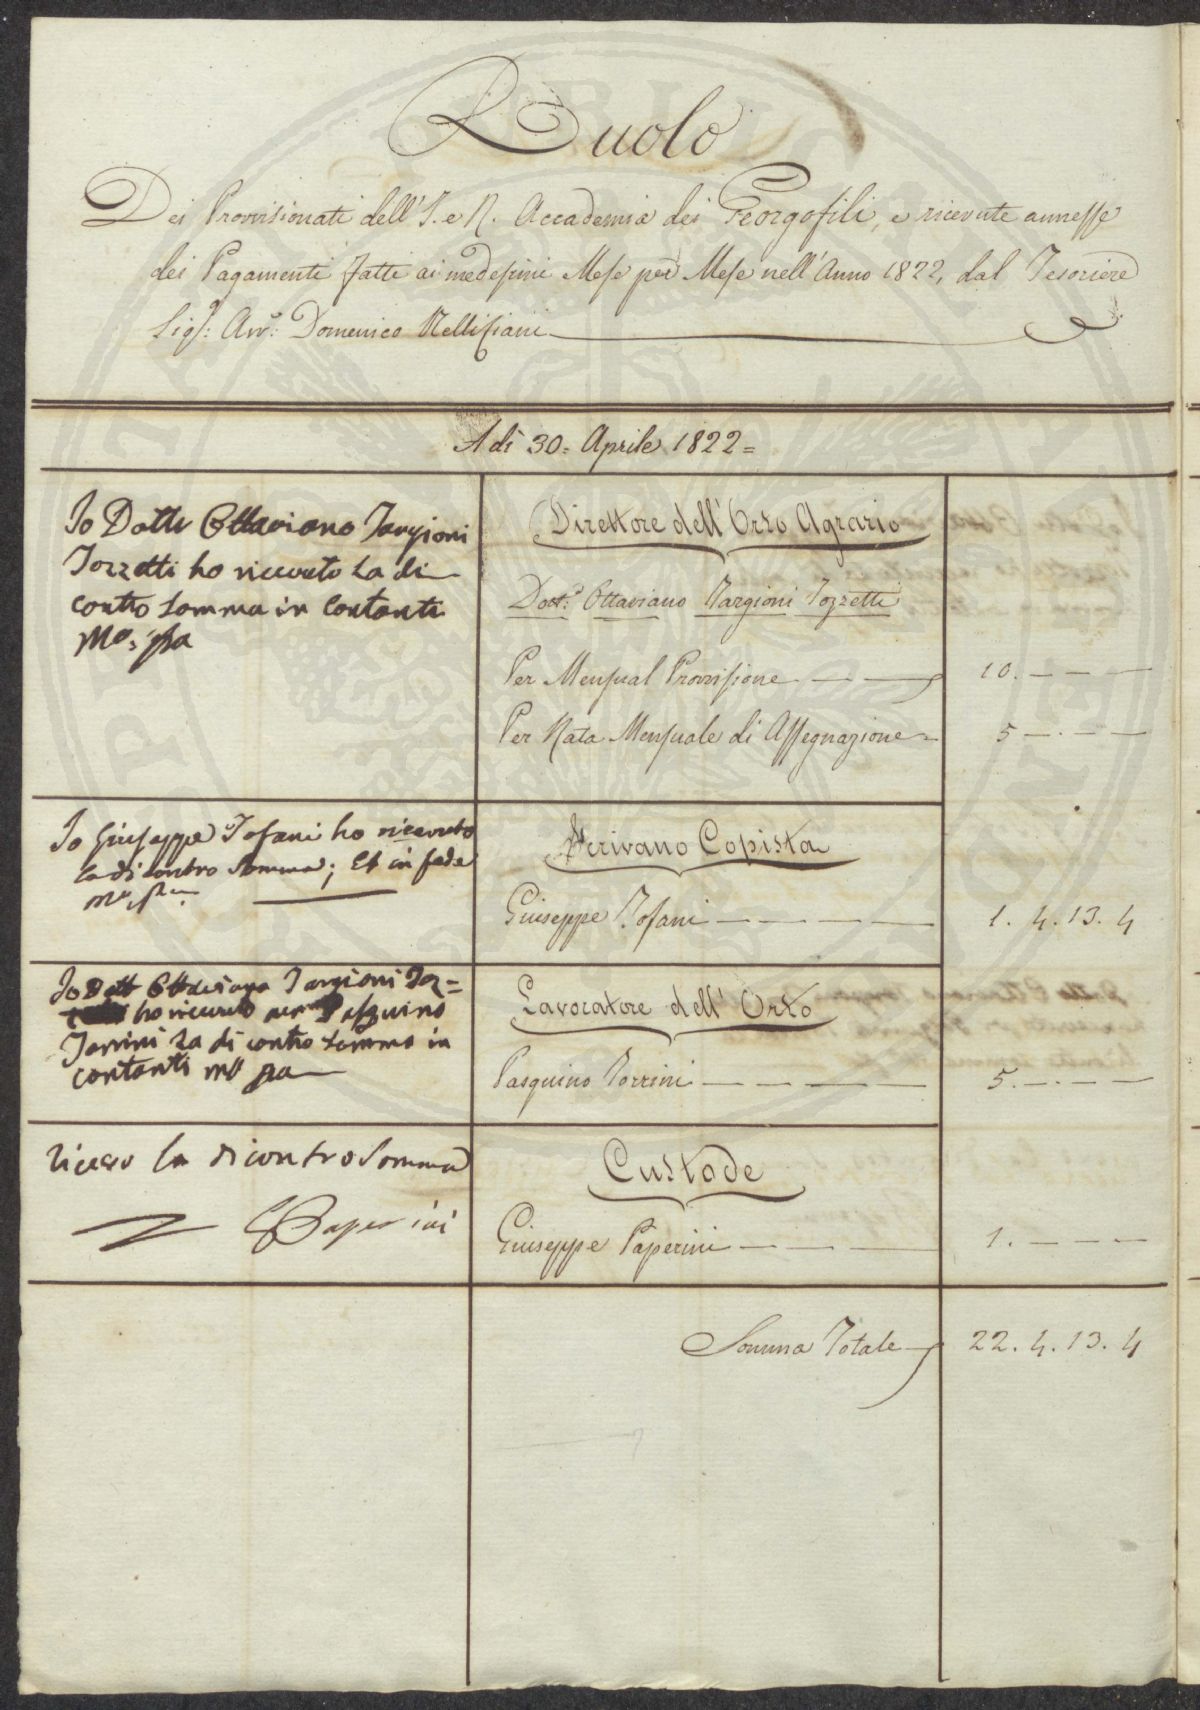 Ruolo
Dei Provvisionati dell' I. e R. Accademia dei Georgofili, e ricevute annesse
dei Pagamenti fatti ai medesimi Mese per Mese nell' Anno 1822, dal Tesoriere
Sig.r Avv.o Domenico Nellisiani
A dì 30 = Aprile 1822 =
Io Dotte Ottaviano Targioni
Tozzetti ho ricevuto La di
contro Somma in Contanti
Mo. pa
Direttore dell' Orto Agrario
Dott.e Ottaviano Targioni Tozzetti
Per Mensual Provvisione 10. — — —
Per Rata Mensuale di Assegnazione 5 — — —
Io Giuseppe Tofani ho ricevuto
la di contro Somma; Et in fede
Scrivano Copista
Giuseppe Tofani — — — — 1. 4. 13. 4
Io Dott Ottaviano Targioni Toz=
ho ricevuto per Pasquino
Torrini La di contro Somma in
contanti mo pa
Lavoratore dell' Orto
Pasquino Torrini — — — — 5. — — —
ricevo la di contro Somma
G Paperini
Custode
Giuseppe Paperini — — — 1. — — —
Somma Totale 22. 4. 13. 4